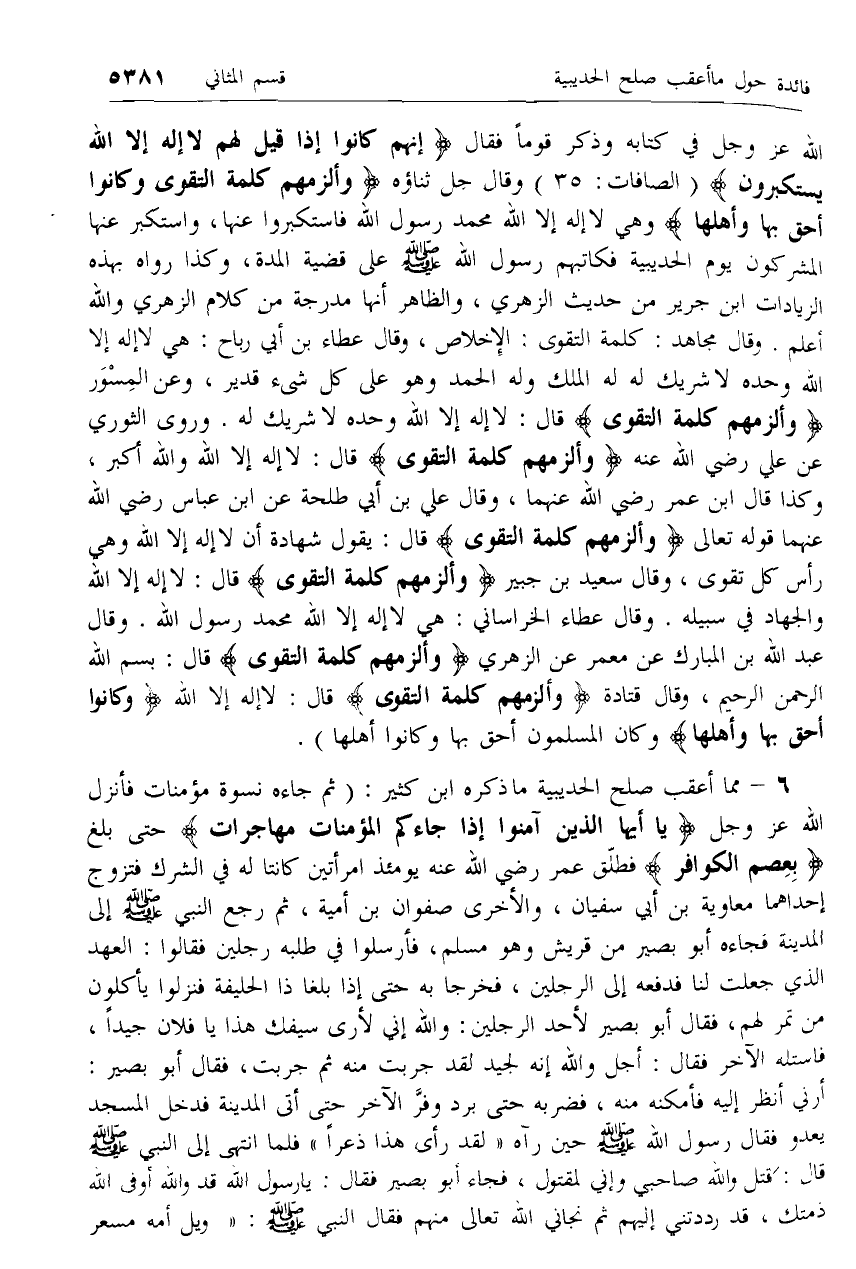 فائدة حول ماأعقب صلح الحديبية قسم المثاني ٥٣٨١
الله عز وجل في كتابه وذكر قوماً فقال ﴿ إنهم كانوا إذا قيل لهم لاإله إلا الله
يستكبرون ﴾ ( الصافات : ٣٥ ) وقال جل ثناؤه ﴿ وألزمهم كلمة التقوى وكانوا
أحق بها وأهلها ﴾ وهي لاإله إلا الله محمد رسول الله فاستكبروا عنها، واستكبر عنها
المشركون يوم الحديبية فكاتبهم رسول الله ﷺ على قضية المدة، وكذا رواه بهذه
الزيادات ابن جرير من حديث الزهري ، والظاهر أنها مدرجة من كلام الزهري والله
أعلم . وقال مجاهد : كلمة التقوى : الإخلاص ، وقال عطاء بن أبي رباح : هي لاإله إلا
الله وحده لاشريك له له الملك وله الحمد وهو على كل شيء قدير ، وعن المِسْوَر
﴿ وألزمهم كلمة التقوى ﴾ قال : لاإله إلا الله وحده لاشريك له . وروى الثوري
عن علي رضي الله عنه ﴿ وألزمهم كلمة التقوى ﴾ قال : لاإله إلا الله والله أكبر ،
وكذا قال ابن عمر رضي الله عنهما ، وقال علي بن أبي طلحة عن ابن عباس رضي الله
عنهما قوله تعالى ﴿ وألزمهم كلمة التقوى ﴾ قال : يقول شهادة أن لاإله إلا الله وهي
رأس كل تقوى ، وقال سعيد بن جبير ﴿ وألزمهم كلمة التقوى ﴾ قال : لاإله إلا الله
والجهاد في سبيله . وقال عطاء الخراساني : هي لاإله إلا الله محمد رسول الله . وقال
عبد الله بن المبارك عن معمر عن الزهري ﴿ وألزمهم كلمة التقوى ﴾ قال : بسم الله
الرحمن الرحيم ، وقال قتادة ﴿ وألزمهم كلمة التقوى ﴾ قال : لاإله إلا الله ﴿ وكانوا
أحق بها وأهلها﴾ وكان المسلمون أحق بها وكانوا أهلها ) .
٦ – مما أعقب صلح الحديبية ماذكره ابن كثير : ( ثم جاءه نسوة مؤمنات فأنزل
الله عز وجل ﴿ يا أيها الذين آمنوا إذا جاءكم المؤمنات مهاجرات ﴾ حتى بلغ
﴿ بِعِصم الكوافر ﴾ فطلّق عمر رضي الله عنه يومئذ امرأتين كانتا له في الشرك فتزوج
إحداهما معاوية بن أبي سفيان ، والأخرى صفوان بن أمية ، ثم رجع النبي ﷺ إلى
المدينة فجاءه أبو بصير من قريش وهو مسلم، فأرسلوا في طلبه رجلين فقالوا : العهد
الذي جعلت لنا فدفعه إلى الرجلين ، فخرجا به حتى إذا بلغا ذا الحليفة فنزلوا يأكلون
من تمر لهم، فقال أبو بصير لأحد الرجلين : والله إني لأرى سيفك هذا يا فلان جيداً ،
فاستله الآخر فقال : أجل والله إنه لجيد لقد جربت منه ثم جربت، فقال أبو بصير :
أرني أنظر إليه فأمكنه منه ، فضربه حتى برد وفرَّ الآخر حتى أتى المدينة فدخل المسجد
يعدو فقال رسول الله ﷺ حين رآه « لقد رأى هذا ذعراً » فلما انتهى إلى النبي ﷺ
قال : قتل والله صاحبي وإني لمقتول ، فجاء أبو بصير فقال : يارسول الله قد والله أوفى الله
ذمتك ، قد رددتني إليهم ثم نجاني الله تعالى منهم فقال النبي ﷺ : « ويل أمه مسعر